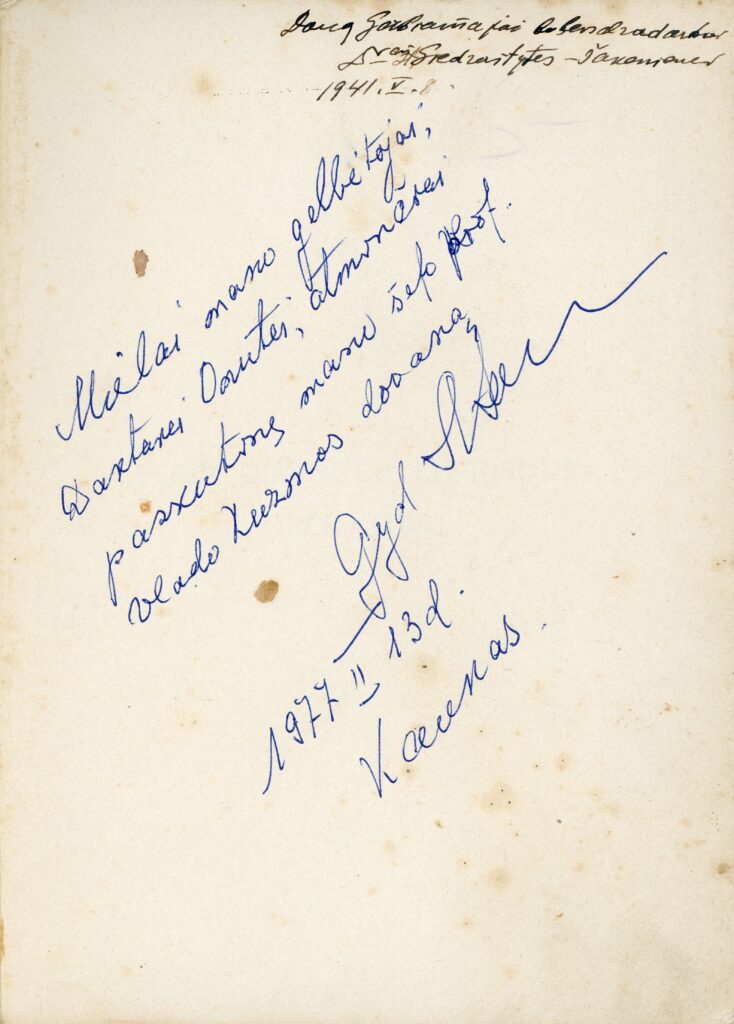 Daug Gerbiamajai bebendradarbei
Drei Giedraitytės-
1941.V.8.
Mielai mano gelbėtojai,
Daktarei Onutei, atminčiai
paskutinę mano šefo Prof.
Vlado Kuzmos dovaną
Gyd
1977 II 13d.
Kaunas.